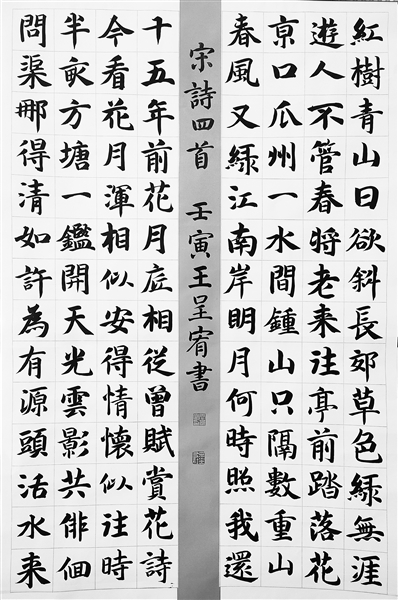 紅樹青山日欲斜長郊草色緑無涯
遊人不管春將老来往亭前踏落花
京口瓜州一水間鍾山只隔數重山
春風又緑江南岸明月何時照我還
宋詩四首 壬寅王呈宥書
十五年前花月底相從曾賦賞花詩
今看花月渾相似安得情懷似往時
半畝方塘一鑑開天光雲影共俳佪
問渠那得清如許為有源頭活水来